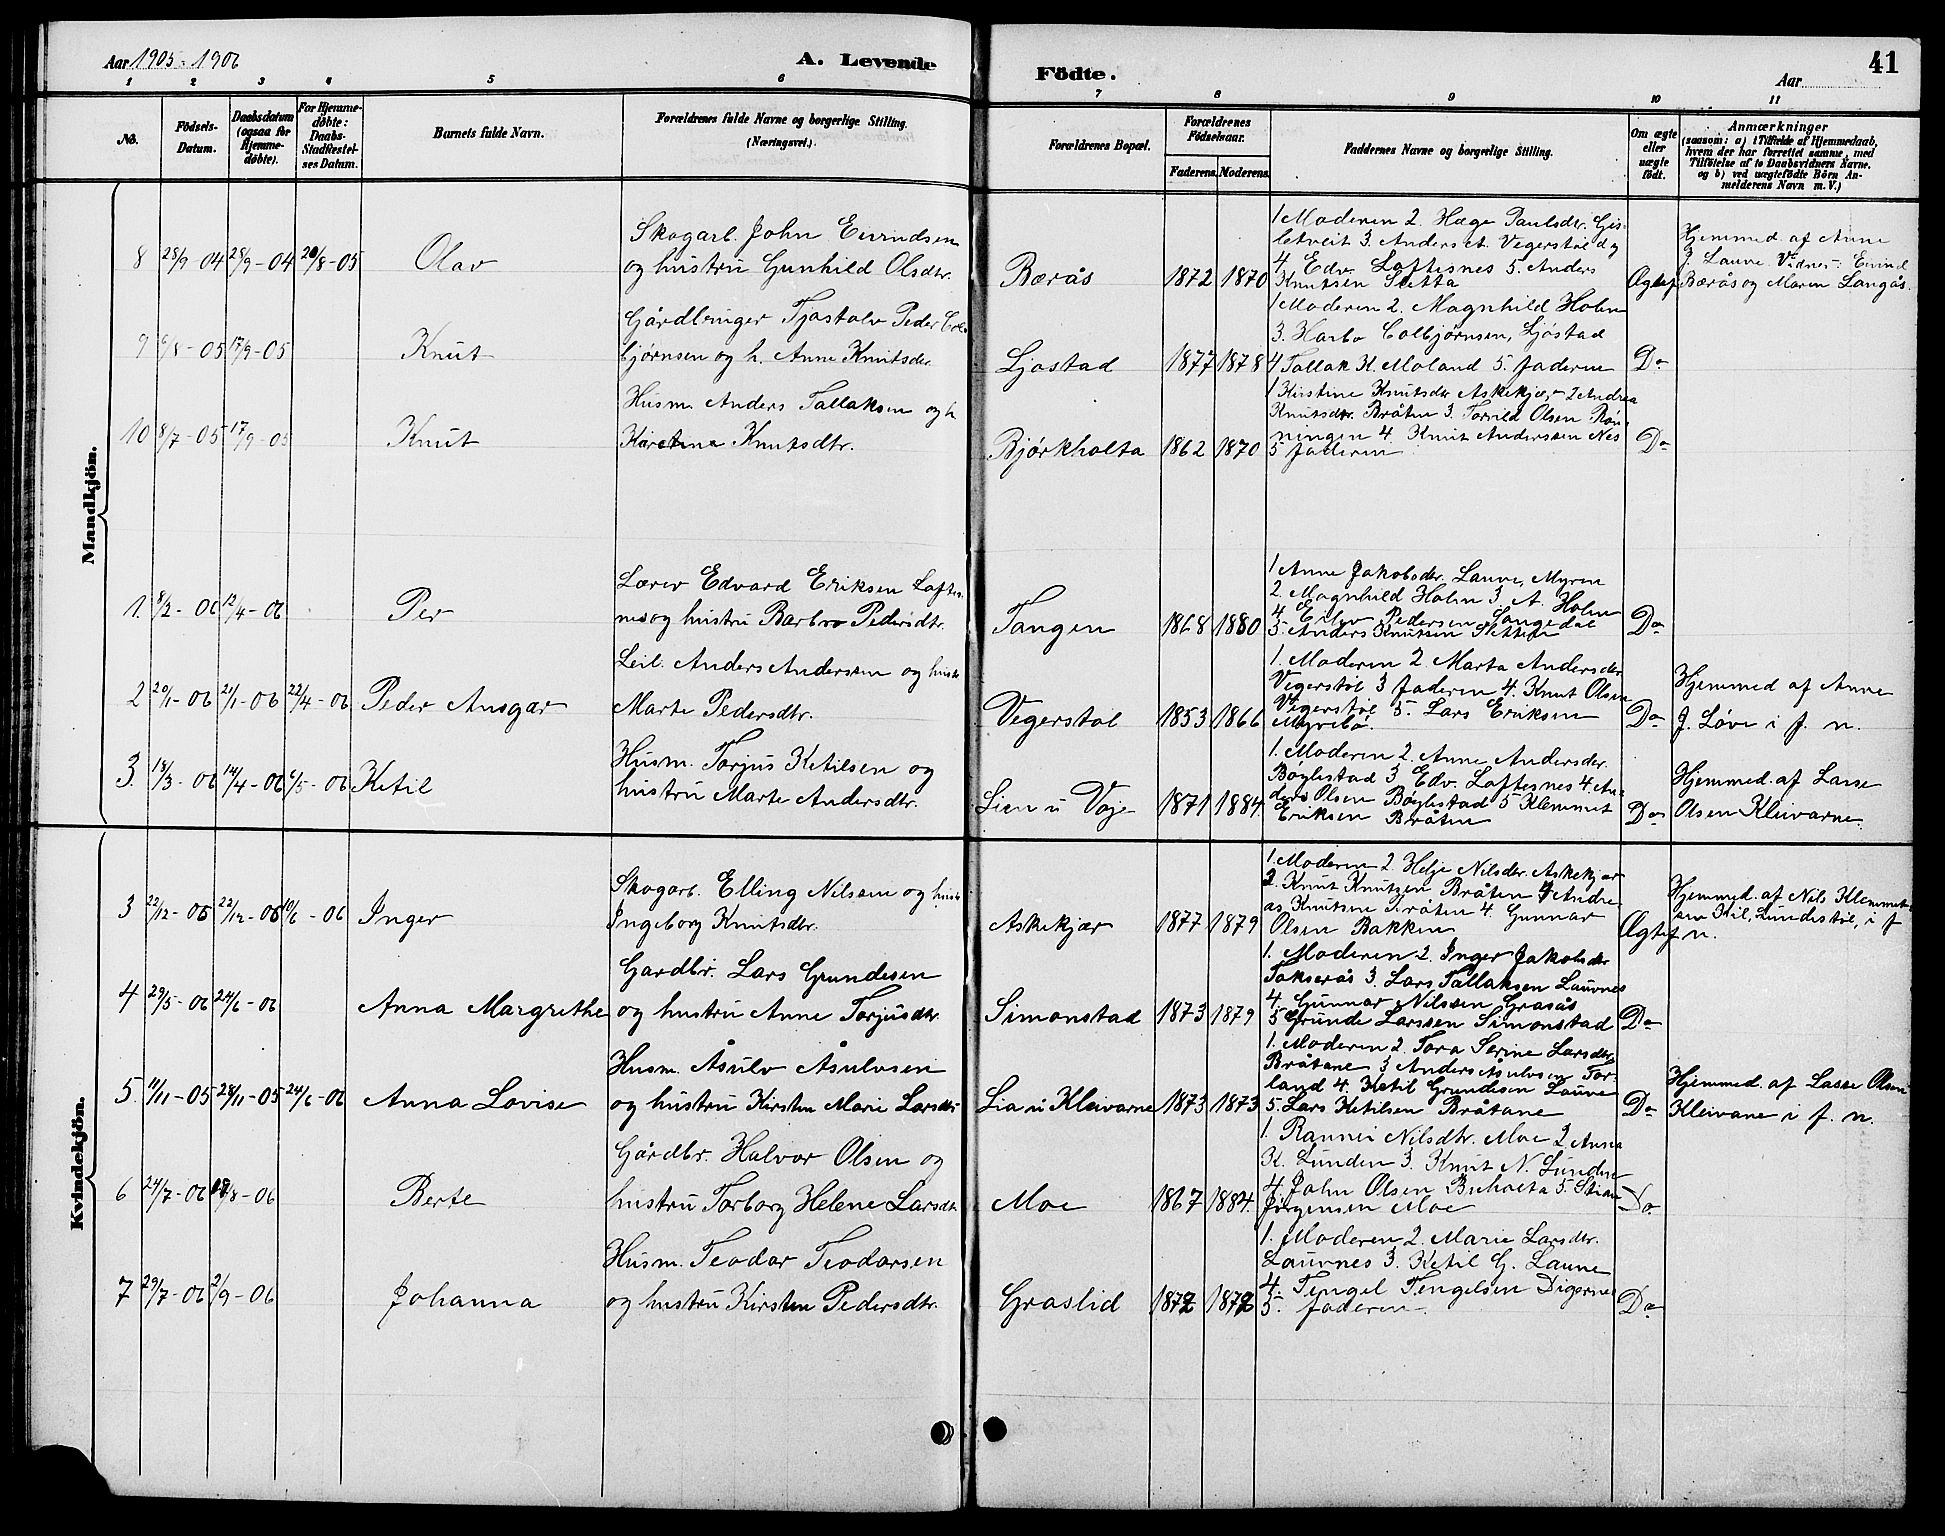 Aar 1905-1906
A. Levende Födte.
Aar
41
1 2 3 4 5 6 7 8 9 10 11
No.
Födsels-Datum.
Daabsdatum (ogsaa for Hjemme-döbte).
For Hjemme-döbte: Daabs-Stadfæstel-ses Datum.
Barnets fulde Navn.
Forældrenes fulde Navne og borgerlige Stilling. (Næringsvei.)
Forældrenes Bopæl.
Forældrenes Födselsaar.
Faderens. Moderens.
Faddernes Navne og borgerlige Stilling.
Om ægte eller uægte födt.
Anmærkninger
(saasom: a) i Tilfælde af Hjemmedaab,
hvem der har forrettet samme, med
Tilföielse af to Daabsvidners Navne.
og b) ved uægtefödte Börn An-
melderens Navn m. V.)
Mandkjön.
8 28/9-04 28/9-04 20/8-05 Olav
Skogarb. John Eivindsen
og hustru Gunhild Olsdtr.
Bærås 1872 1870
1 Moderen 2. Hæge Paulsdtr. Gis-
letveit 3. Anders A. Vegerstøl og
4. Edv. Loftesnes 5. Anders
Knutsen Sletta
Ægtef
Hjemmed. af Anne
J. Lauve Vidnes: Eivind
Bærås og Maren Langås.
9 6/8-05 17/9-05 Knut
Gårdbruger Tjøstolv Peder Col-
bjørnsen og h. Anne Knutsdr.
Ljøstad 1877 1878
1 Moderen 2. Magnhild Holm
3. Karbo Colbjørnsen, Ljøstad
4 Tallak K. Moland 5. Faderen
Do
10 8/7-05 17/9-05 Knut
Husm. Anders Tallaksen og h
Kirstine Knutsdtr.
Bjørkholta 1862 1870
1 Kirstine Knutsdtr Askekjær 2 Andrea
Knutsdtr. Bråten 3. Torvild Olsen Røn-
ningen 4. Knut Anderssen Nes
5 Faderen
Do
1. 8/2-06 12/4-06 Per
Lærer Edvard Eriksen Loftes-
nes og hustru Barbro Pedersdtr.
Tangen 1868 1880
1 Anne Jakobsdtr. Lauve, Myren
2. Magnhild Holm 3 A. Holm
4. Eilev Pedersen Songedal
5. Anders Knutsen Sletten
Do
2 20/1-06 21/1-06 22/4-06 Peder Ansgar
Leil. Anders Anderssen og hustr
Marte Pedersdtr.
Vegerstøl 1853 1866
1. Moderen 2. Marta Andersdtr
Vegerstøl 3 Faderen 4. Knut Olsen
Vegerstøl 5. Lars Eriksen
Myrebø.
Do
Hjemmed af Anne
J. Løve i f. n.
3. 18/3-06 14/4-06 6/5-06 Ketil
Husm. Torjus Ketilsen og
hustru Marte Andersdtr.
Lien u Voje 1871 1884.
1. Moderen 2. Anne Andersdtr.
Bøylestad 3 Edv. Loftesnes 4. An-
ders Olsen Bøylestad 5 Klemmet
Eriksen Bråten
Do
Hjemmed. af Lasse
Olsen Kleivarne.
Kvindekjön.
3 22/12-05 22/12-05 10/6-06 Inger
Skogarb. Elling Nilssen og hustr
Ingeborg Knutsdtr.
Askekjær 1877 1879
1. Moderen 2 Helje Nilsdtr. Askekjær
3. Knut Knutzen Bråten 4 Andre-
as Knutsen Bråten 4. Gunnar
Olsen Bakken
Ægtef
Hjemmed. af Nils Klemmet-
sen Lundestøl, i f
n.
4 29/5-06 24/6-06 Anna Margrethe
Gardbr. Lars Grundesen
og hustru Anne Torjusdtr
Simonstad 1873 1879
1. Moderen 2. Inger Jakobsdtr
Takserås 3. Lars Tallaksen Lauvnes
4. Gunnar Nilssen Grasås
5 Grunde Larssen Simonstad
Do
5. 11/11-05 28/11-05 24/6-06 Anna Lovise
Husm. Åsulv Åsulvsen
og hustru Kirsten Marie Larsdtr
Lia u Kleivarne 1873 1873
1. Moderen 2. Tora Serine Larsdtr.
Bråtane 3 Anders Åsulvsen Tor-
land 4. Ketil Grundesen Lauve
5. Lars Ketilsen Bråtane
Do
Hjemmed. af Lasse Olsen
Kleivane i f. n.
6 24/7-06 19/8-06 Berte
Gårdbr. Halvor Olsen og
hustru Torborg Helene Larsdtr.
Moe 1867 1884.
1. Rannei Nilsdtr. Moe 2 Anna
K. Lunden 3. Knut N. Lunden
4. John Olsen Buholta 5. Stian
Jørgensen Moe
Do.
7 29/7-06 2/9-06 Johanna
Husm. Teodor Teodorsen
og hustru Kirsten Pedersdtr.
Graslid 1872
1. Moderen 2. Marie Larsdtr.
Lauvnes 3. Ketil G. Lauve
4. Tengel Tengelsen Digernes
5. Faderen.
Do